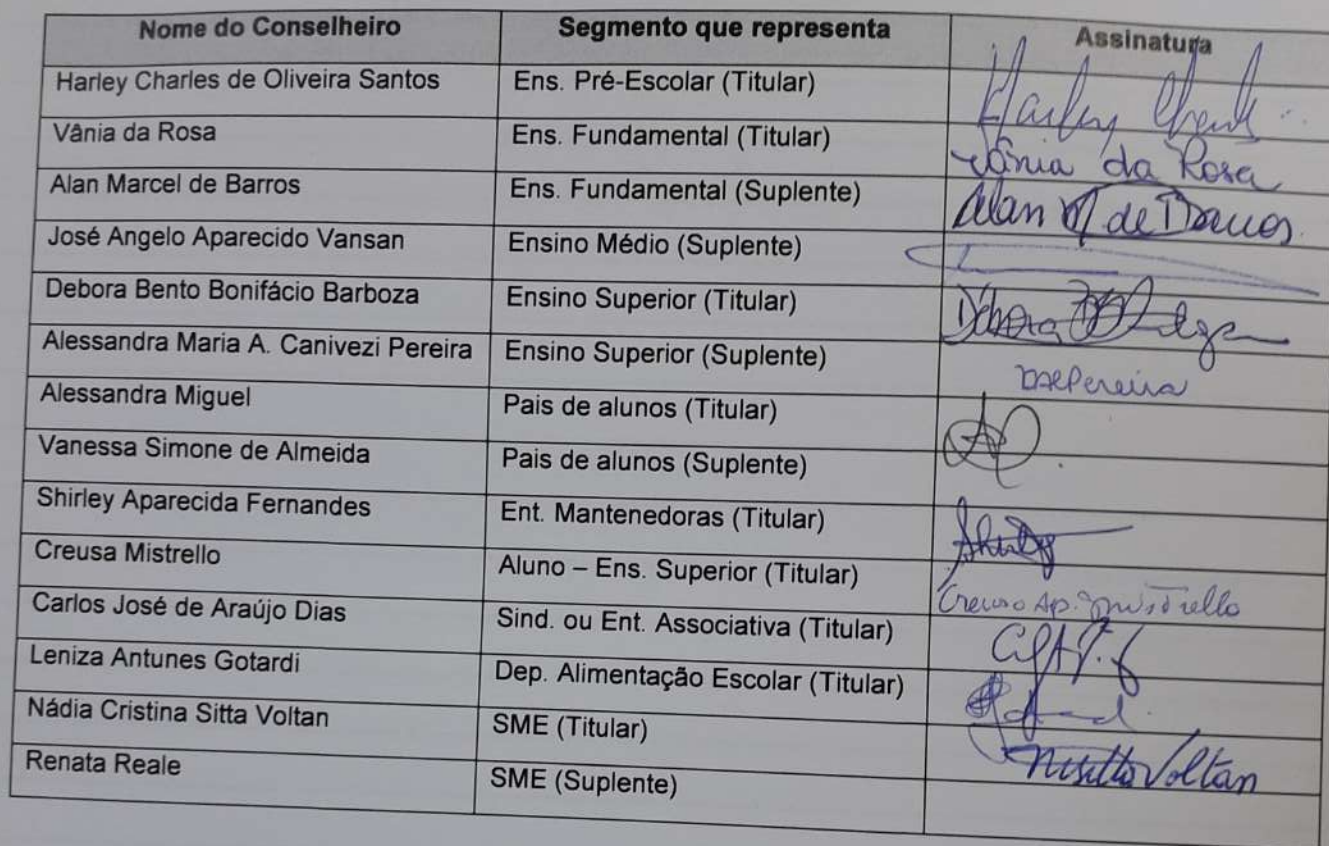 Nome do Conselheiro Segmento que representa Assinatura
Harley Charles de Oliveira Santos Ens. Pré-Escolar (Titular) Harley
Vânia da Rosa Ens. Fundamental (Titular) Vânia da Rosa
Alan Marcel de Barros Ens. Fundamental (Suplente) Alan M de Barros
José Angelo Aparecido Vansan Ensino Médio (Suplente)
Debora Bento Bonifácio Barboza Ensino Superior (Titular) Débora
Alessandra Maria A. Canivezi Pereira Ensino Superior (Suplente)
Alessandra Miguel Pais de alunos (Titular)
Vanessa Simone de Almeida Pais de alunos (Suplente)
Shirley Aparecida Fernandes Ent. Mantenedoras (Titular)
Creusa Mistrello Aluno – Ens. Superior (Titular) Creusa Ap. Mistrello
Carlos José de Araújo Dias Sind. ou Ent. Associativa (Titular)
Leniza Antunes Gotardi Dep. Alimentação Escolar (Titular)
Nádia Cristina Sitta Voltan SME (Titular) Voltan
Renata Reale SME (Suplente)